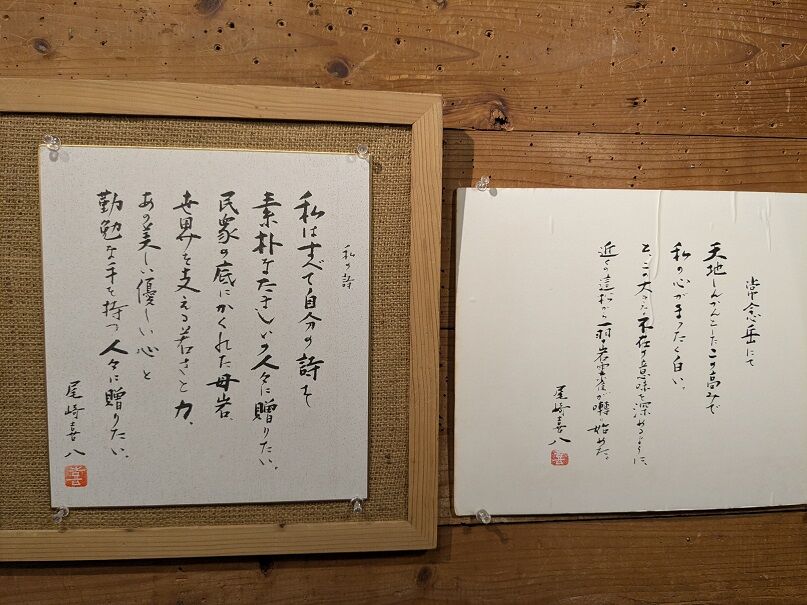 私の詩
私はすべて自分の詩を
素朴なたましいの人々に贈りたい。
民衆の底にかくれた母岩、
世界を支える若さと力、
あの美しい優しい心と
勤勉な手を持つ人々に贈りたい。
尾崎喜八
喜
常念岳にて
天地しんかんとしたこの高みで
私の心がまったく白い。
と、この大きな不在の意味を深めるように、
近くの這松から一羽の岩雲雀が囀り始めた。
尾崎喜八
喜